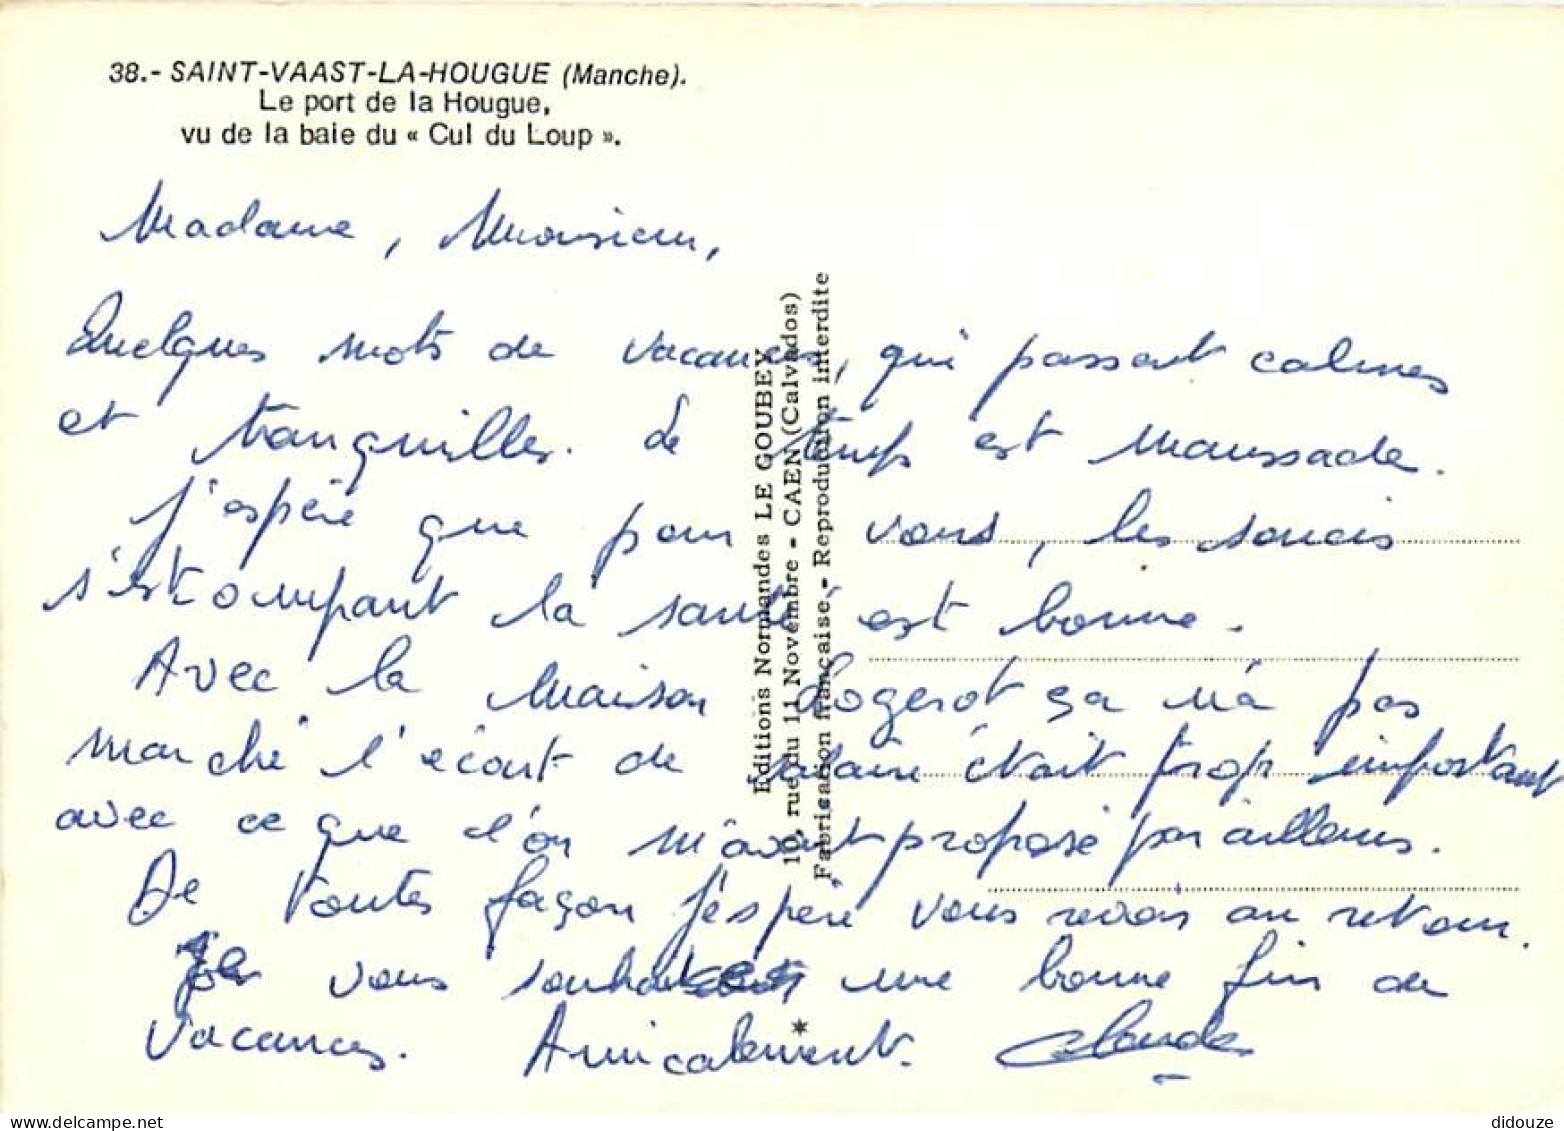 38.- SAINT-VAAST-LA-HOUGUE (Manche).
Le port de la Hougue,
vu de la baie du « Cul du Loup ».
Madame, Monsieur,
Quelques mots de vacances, qui passent calmes
et tranquilles. Le temps est maussade.
J'espère que pour vous, les soucis
s'estompant la santé est bonne.
Avec la maison Logerot ça n'a pas
marché l'écart de salaire était trop important
avec ce que l'on m'avait proposé par ailleurs.
De toutes façon j'espère vous revoir au retour.
Je vous souhaite une bonne fin de
vacances. Amicalement. Claude
Editions Normandes LE GOUBEY
10, rue du 11 Novembre - CAEN (Calvados)
Fabrication française - Reproduction interdite
delcampe.net
didouze